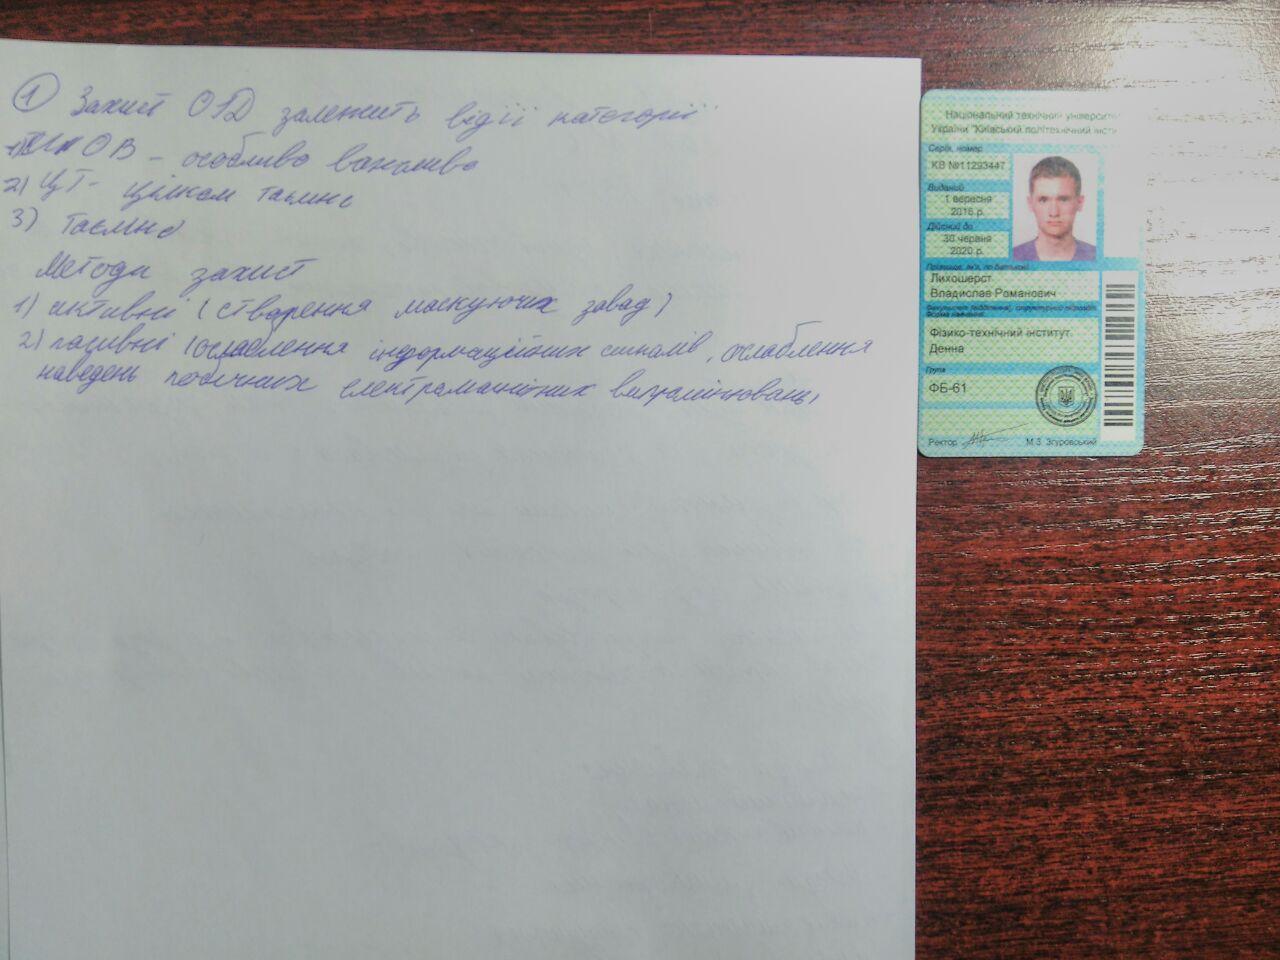 1 Захист ОІД залежить від її категорії
1) ОВ - особливо важливо
2) ЦТ - цілком таємно
3) Таємно
Методи захист
1) активні (створення маскуючих завад)
2) пасивні (ослаблення інформаційних сигналів, ослаблення
наведень побічних електромагнітних випромінювань)
Національний технічний університ
України "Київський політехнічний інсти
Серія, номер
КВ №11293447
Виданий
1 вересня
2016 р.
Дійсний до
30 червня
2020 р.
Прізвище, ім'я, по батькові
Лихошерст
Владислав Романович
Форма навчання
Фізико-технічний інститут.
Денна
Група
ФБ-61
Ректор М.З. Згуровський